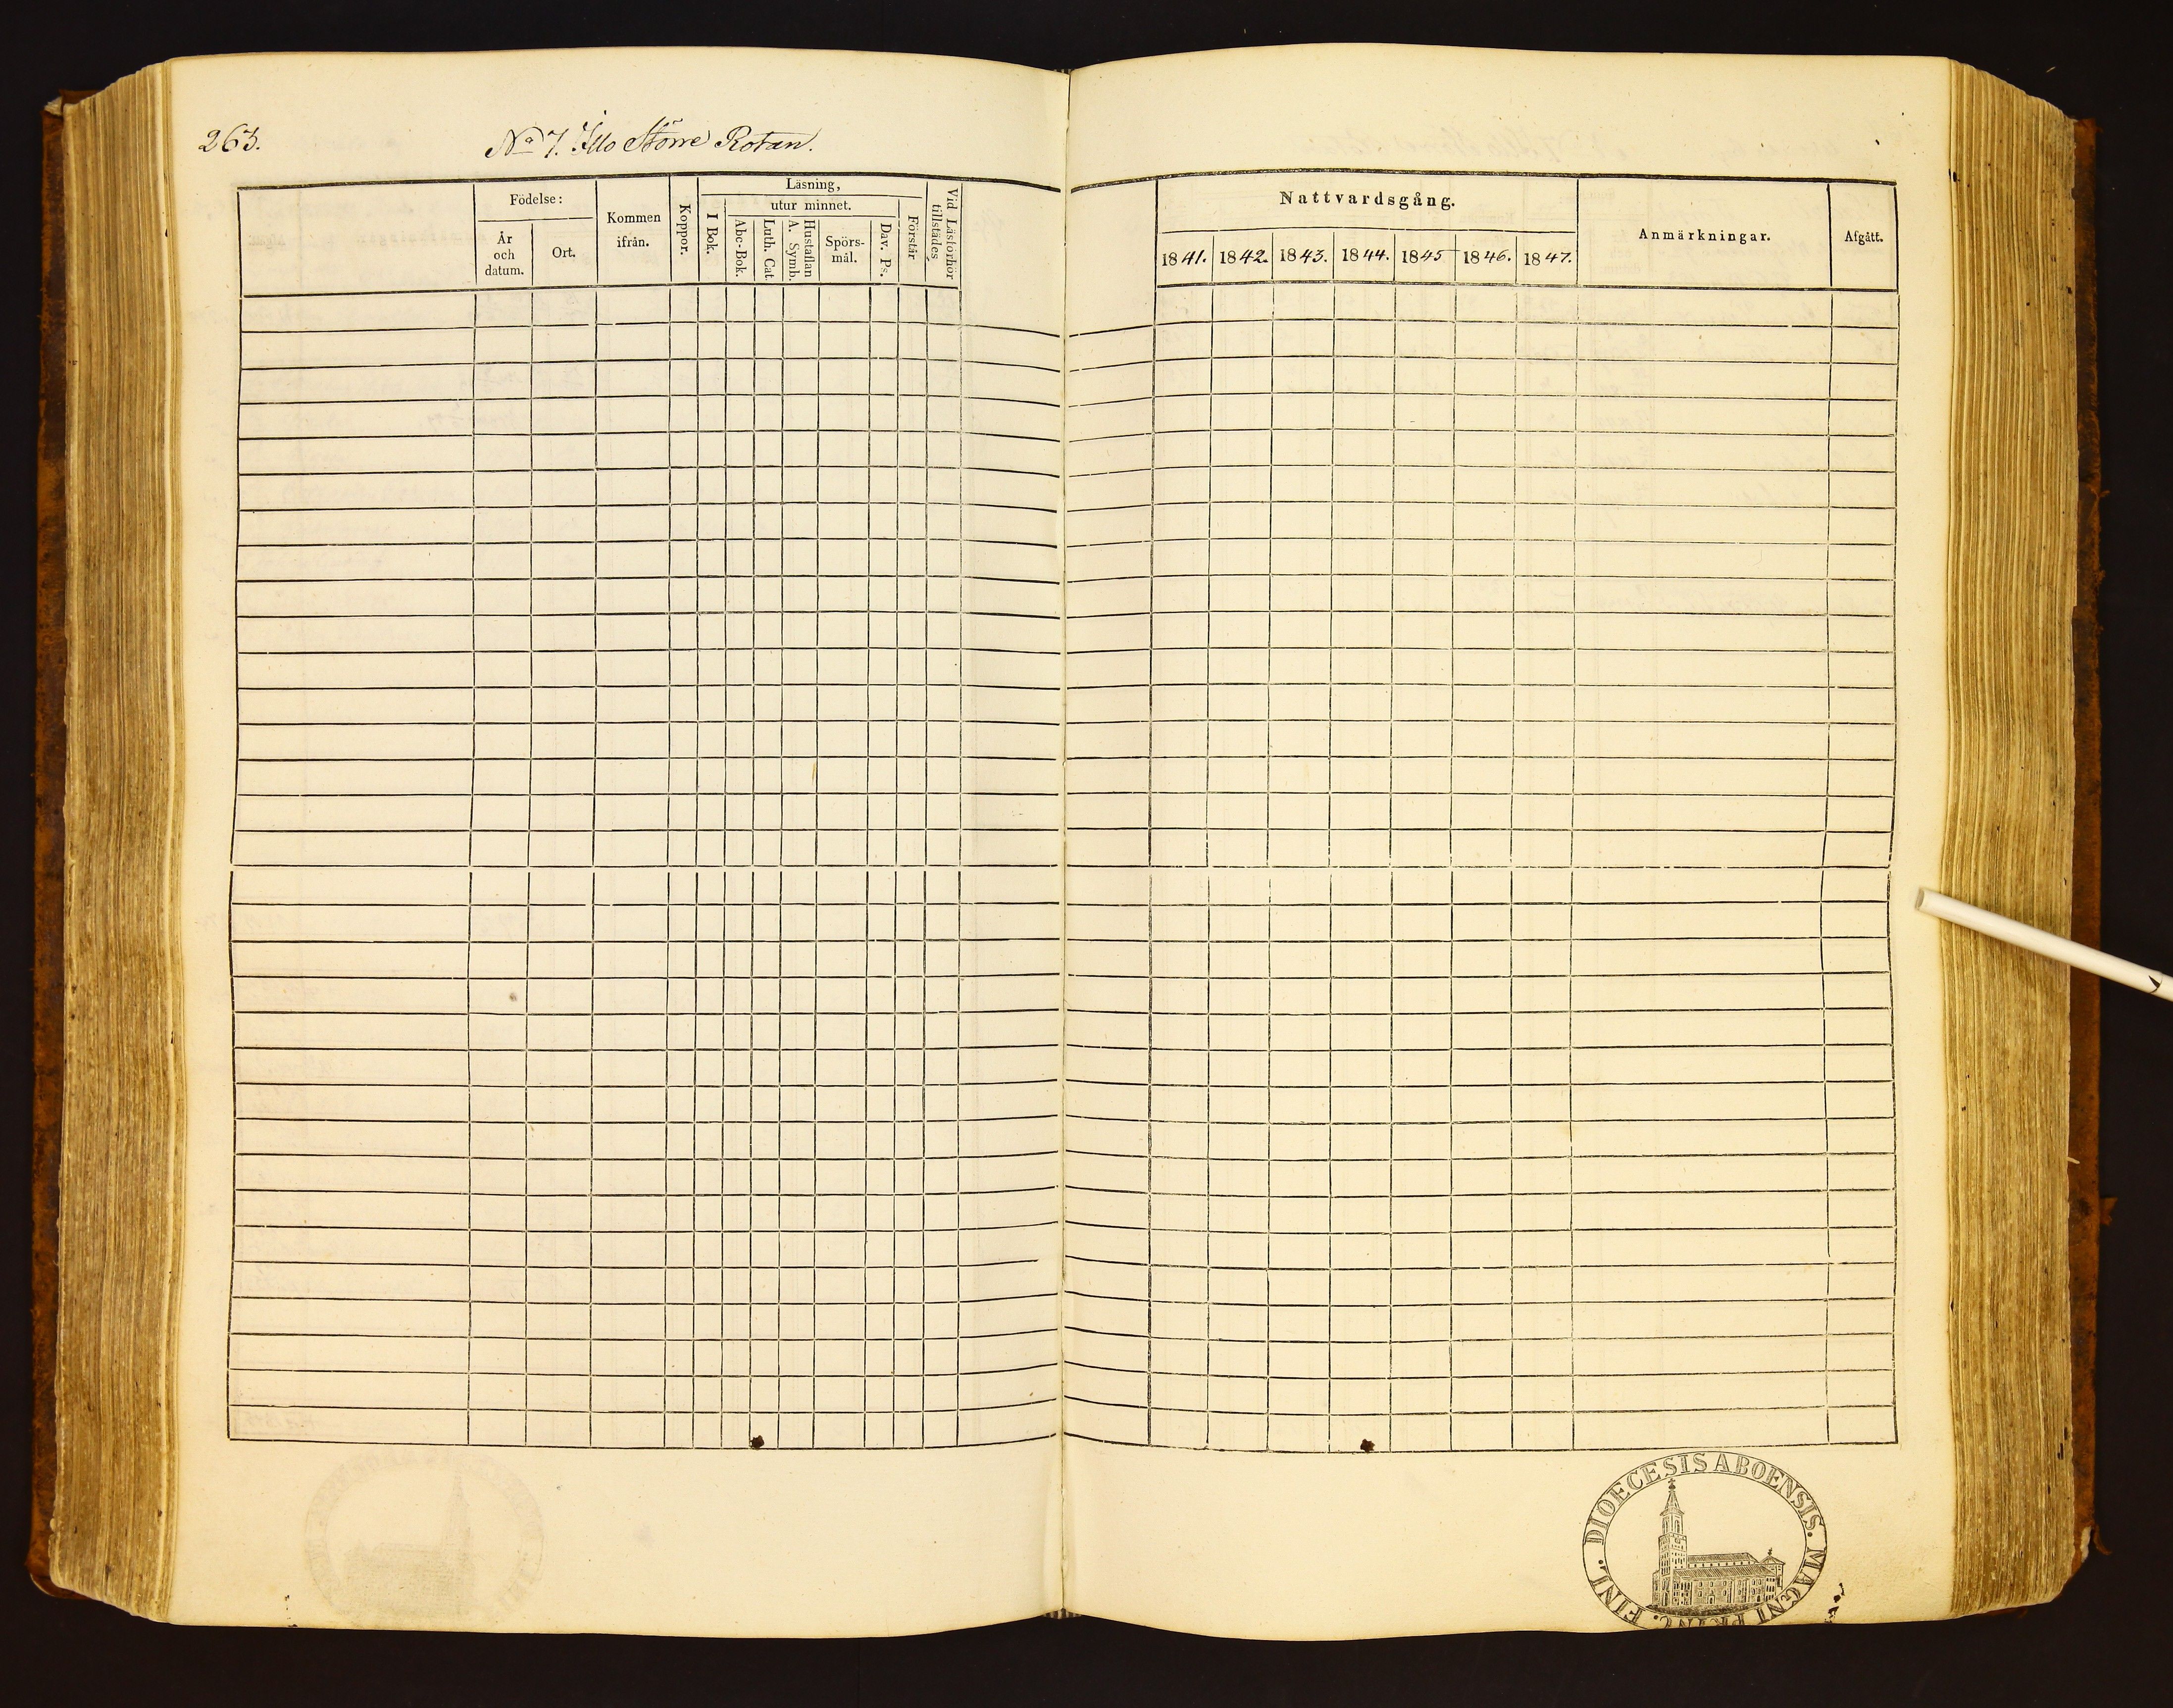 263.
No 7. Illo Större Rotan.
Födelse:
År och datum.
Ort.
Kommen ifrån.
Koppor.
Läsning,
I Bok.
utur minnet.
Abc-Bok.
Luth. Cat
Hustaflan A. Symb.
Spörs-mål.
Dav. Ps.
Förstår
Vid Läsförhör tillstädes
Nattvardsgång.
1841. 1842. 1843. 1844. 1845 1846. 1847.
Anmärkningar.
Afgått.
DIOECESIS ABOENSIS. MAGNI PRINC. FINL.